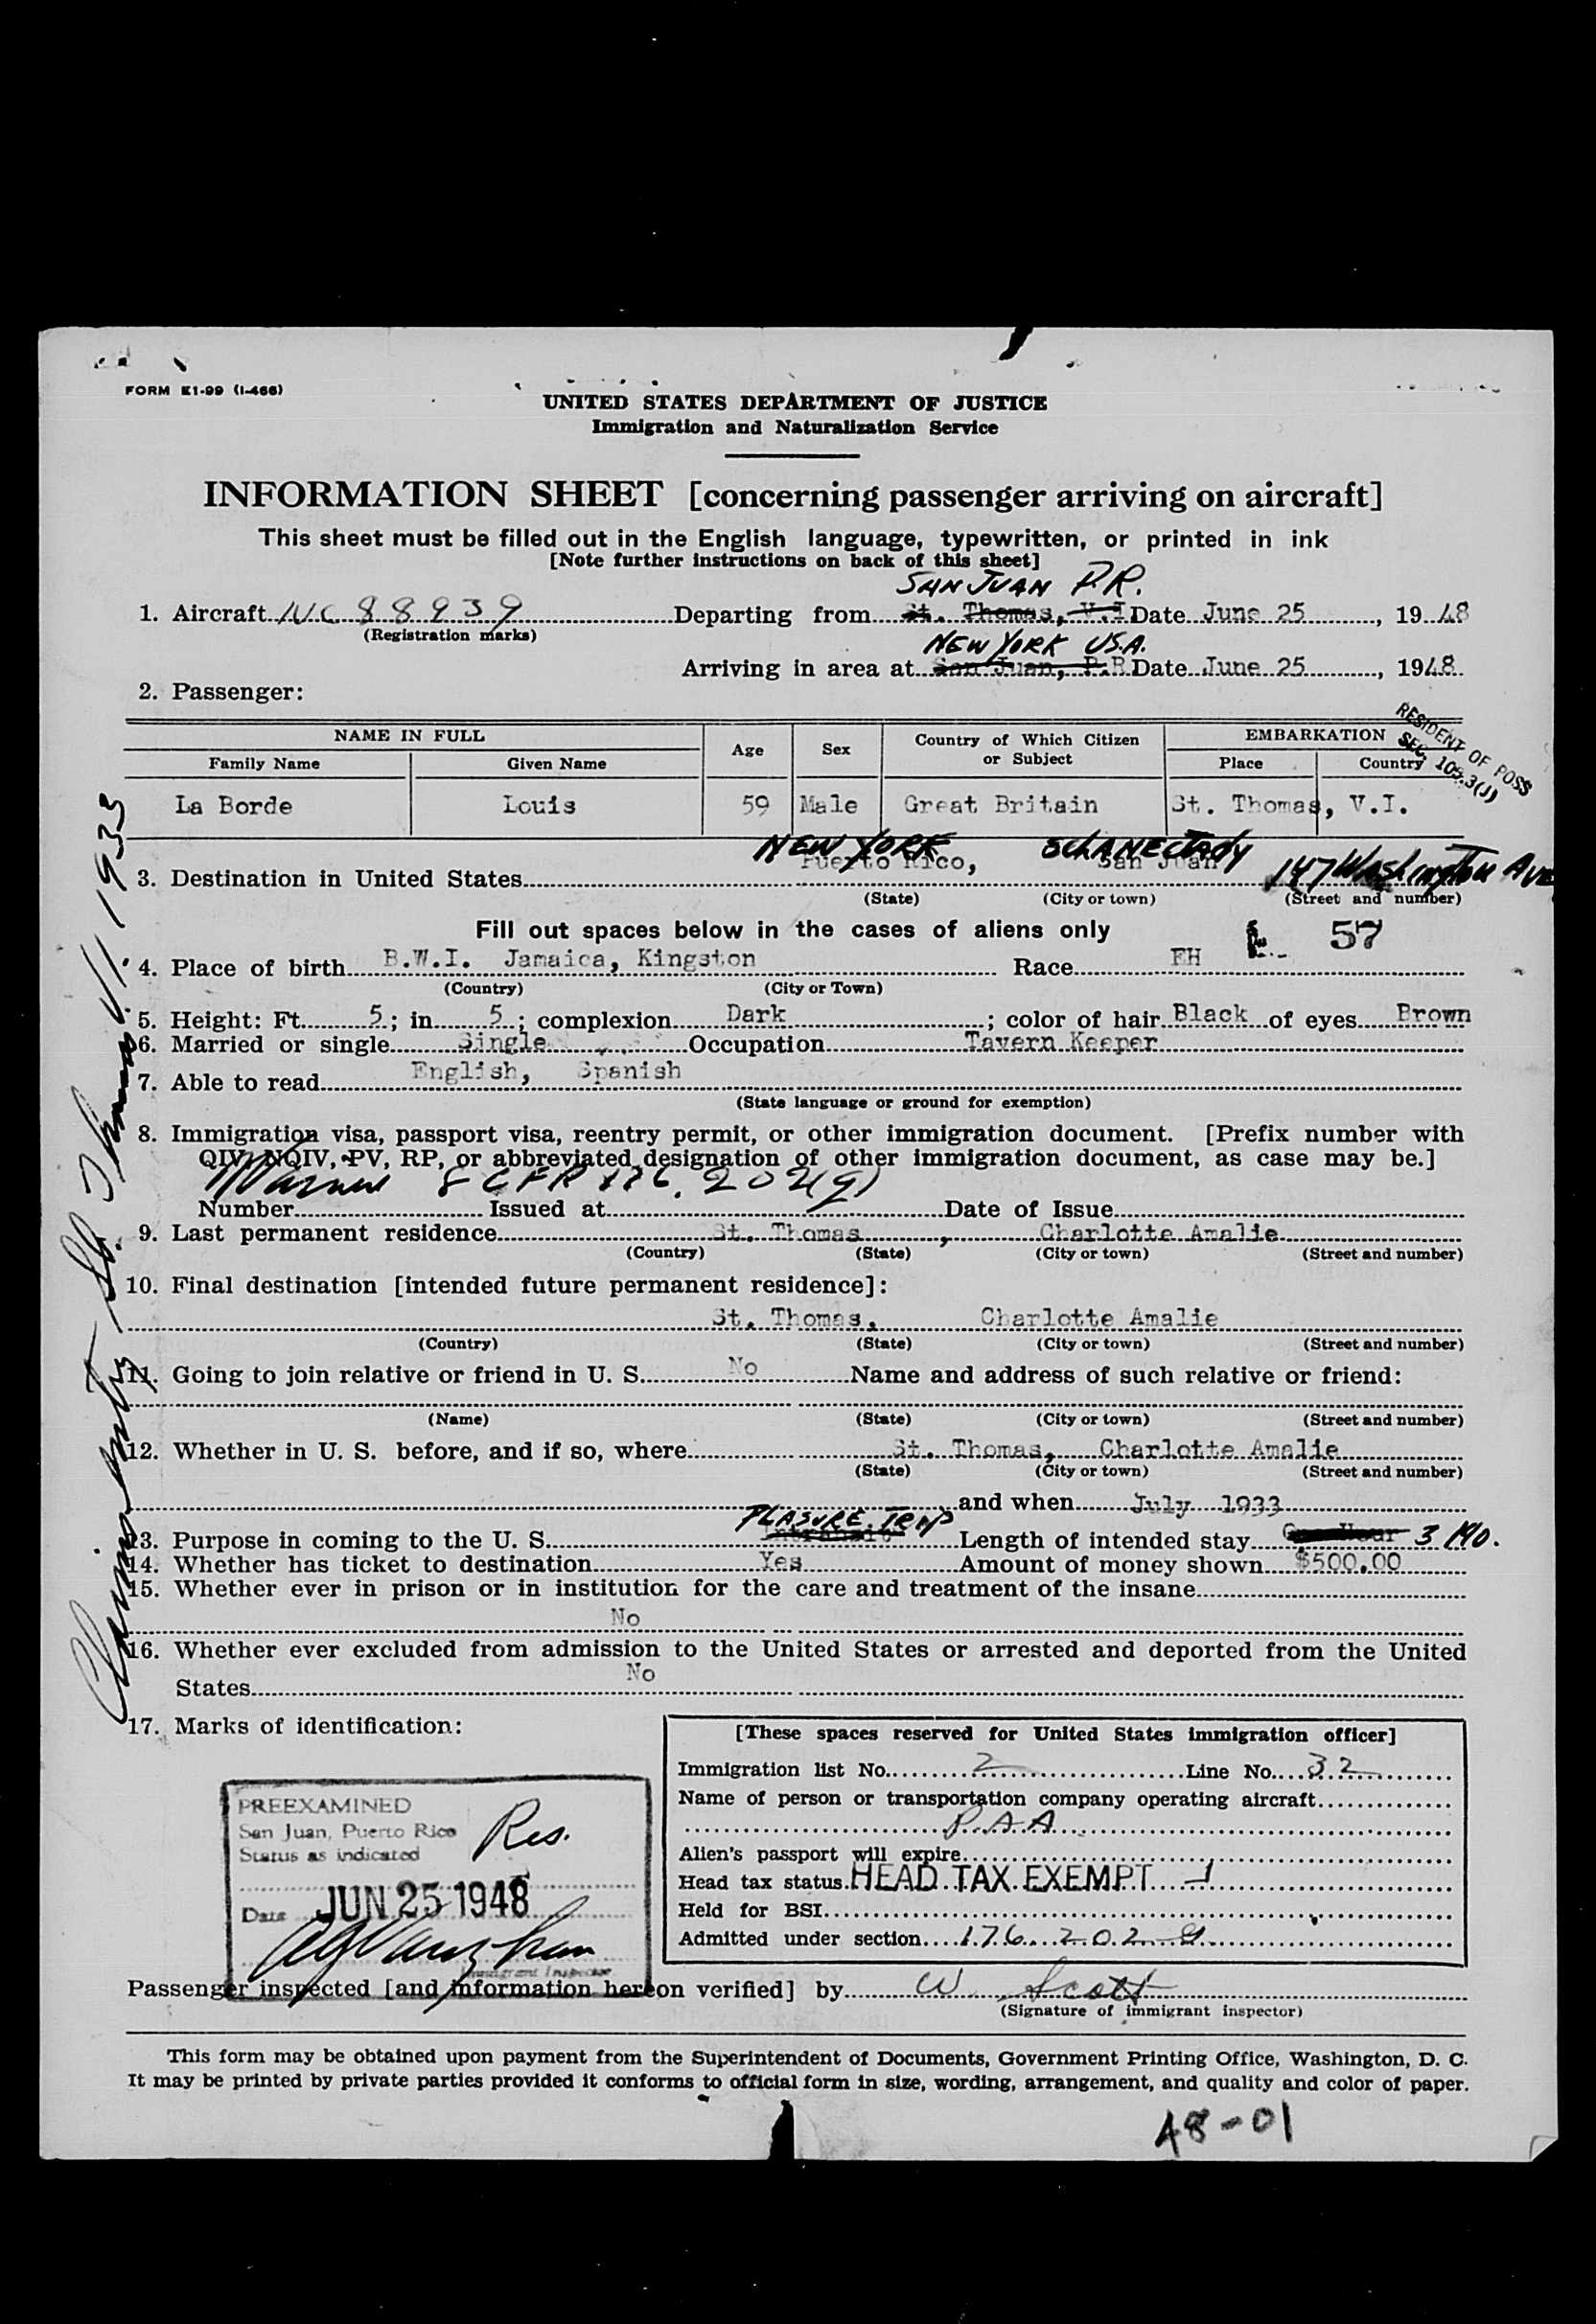 FORM E1-99 (I-466)
UNITED STATES DEPARTMENT OF JUSTICE
Immigration and Naturalization Service
INFORMATION SHEET [concerning passenger arriving on aircraft]
This sheet must be filled out in the English language, typewritten, or printed in ink
[Note further instructions on back of this sheet]
SAN JUAN P.R.
1. Aircraft NC 88939 Departing from St. Thomas, V.I Date June 25, 19 48
(Registration marks)
NEW YORK U.S.A.
Arriving in area at San Juan, P.R Date June 25, 1948
2. Passenger:
RESIDENT OF POSS
SEC. 103.3(J)
NAME IN FULL Age Sex Country of Which Citizen or Subject EMBARKATION
Family Name Given Name Place Country
La Borde Louis 59 Male Great Britain St. Thomas, V.I.
NEW YORK SCHANECTADY 147 Washington Ave
3. Destination in United States Puerto Rico, San Juan
(State) (City or town) (Street and number)
Fill out spaces below in the cases of aliens only
57
4. Place of birth B.W.I. Jamaica, Kingston Race EH
(Country) (City or Town)
5. Height: Ft. 5; in 5; complexion Dark; color of hair Black of eyes Brown
6. Married or single Single Occupation Tavern Keeper
7. Able to read English, Spanish
(State language or ground for exemption)
8. Immigration visa, passport visa, reentry permit, or other immigration document. [Prefix number with
QIV, NQIV, PV, RP, or abbreviated designation of other immigration document, as case may be.]
8 CFR 176.202(g)
Number Issued at Date of Issue
9. Last permanent residence St. Thomas, Charlotte Amalie
(Country) (State) (City or town) (Street and number)
10. Final destination [intended future permanent residence]:
St. Thomas, Charlotte Amalie
(Country) (State) (City or town) (Street and number)
11. Going to join relative or friend in U. S. No Name and address of such relative or friend:
(Name) (State) (City or town) (Street and number)
12. Whether in U. S. before, and if so, where St. Thomas, Charlotte Amalie
(State) (City or town) (Street and number)
and when July 1933
PLASURE TRIP
13. Purpose in coming to the U. S. Intransit Length of intended stay One Hour 3 MO.
14. Whether has ticket to destination Yes Amount of money shown $500.00
15. Whether ever in prison or in institution for the care and treatment of the insane
No
16. Whether ever excluded from admission to the United States or arrested and deported from the United
States No
17. Marks of identification:
[These spaces reserved for United States immigration officer]
Immigration list No. 2 Line No. 32
Name of person or transportation company operating aircraft
P.A.A
Alien's passport will expire
Head tax status HEAD TAX EXEMPT
Held for BSI
Admitted under section 176.202 g
PREEXAMINED
San Juan, Puerto Rico
Status as indicated
Res.
Date JUN 25 1948
Immigrant Inspector
Passenger inspected [and information hereon verified] by W Scott
(Signature of immigrant inspector)
This form may be obtained upon payment from the Superintendent of Documents, Government Printing Office, Washington, D. C.
It may be printed by private parties provided it conforms to official form in size, wording, arrangement, and quality and color of paper.
48-01
St Thomas V.I. 1933